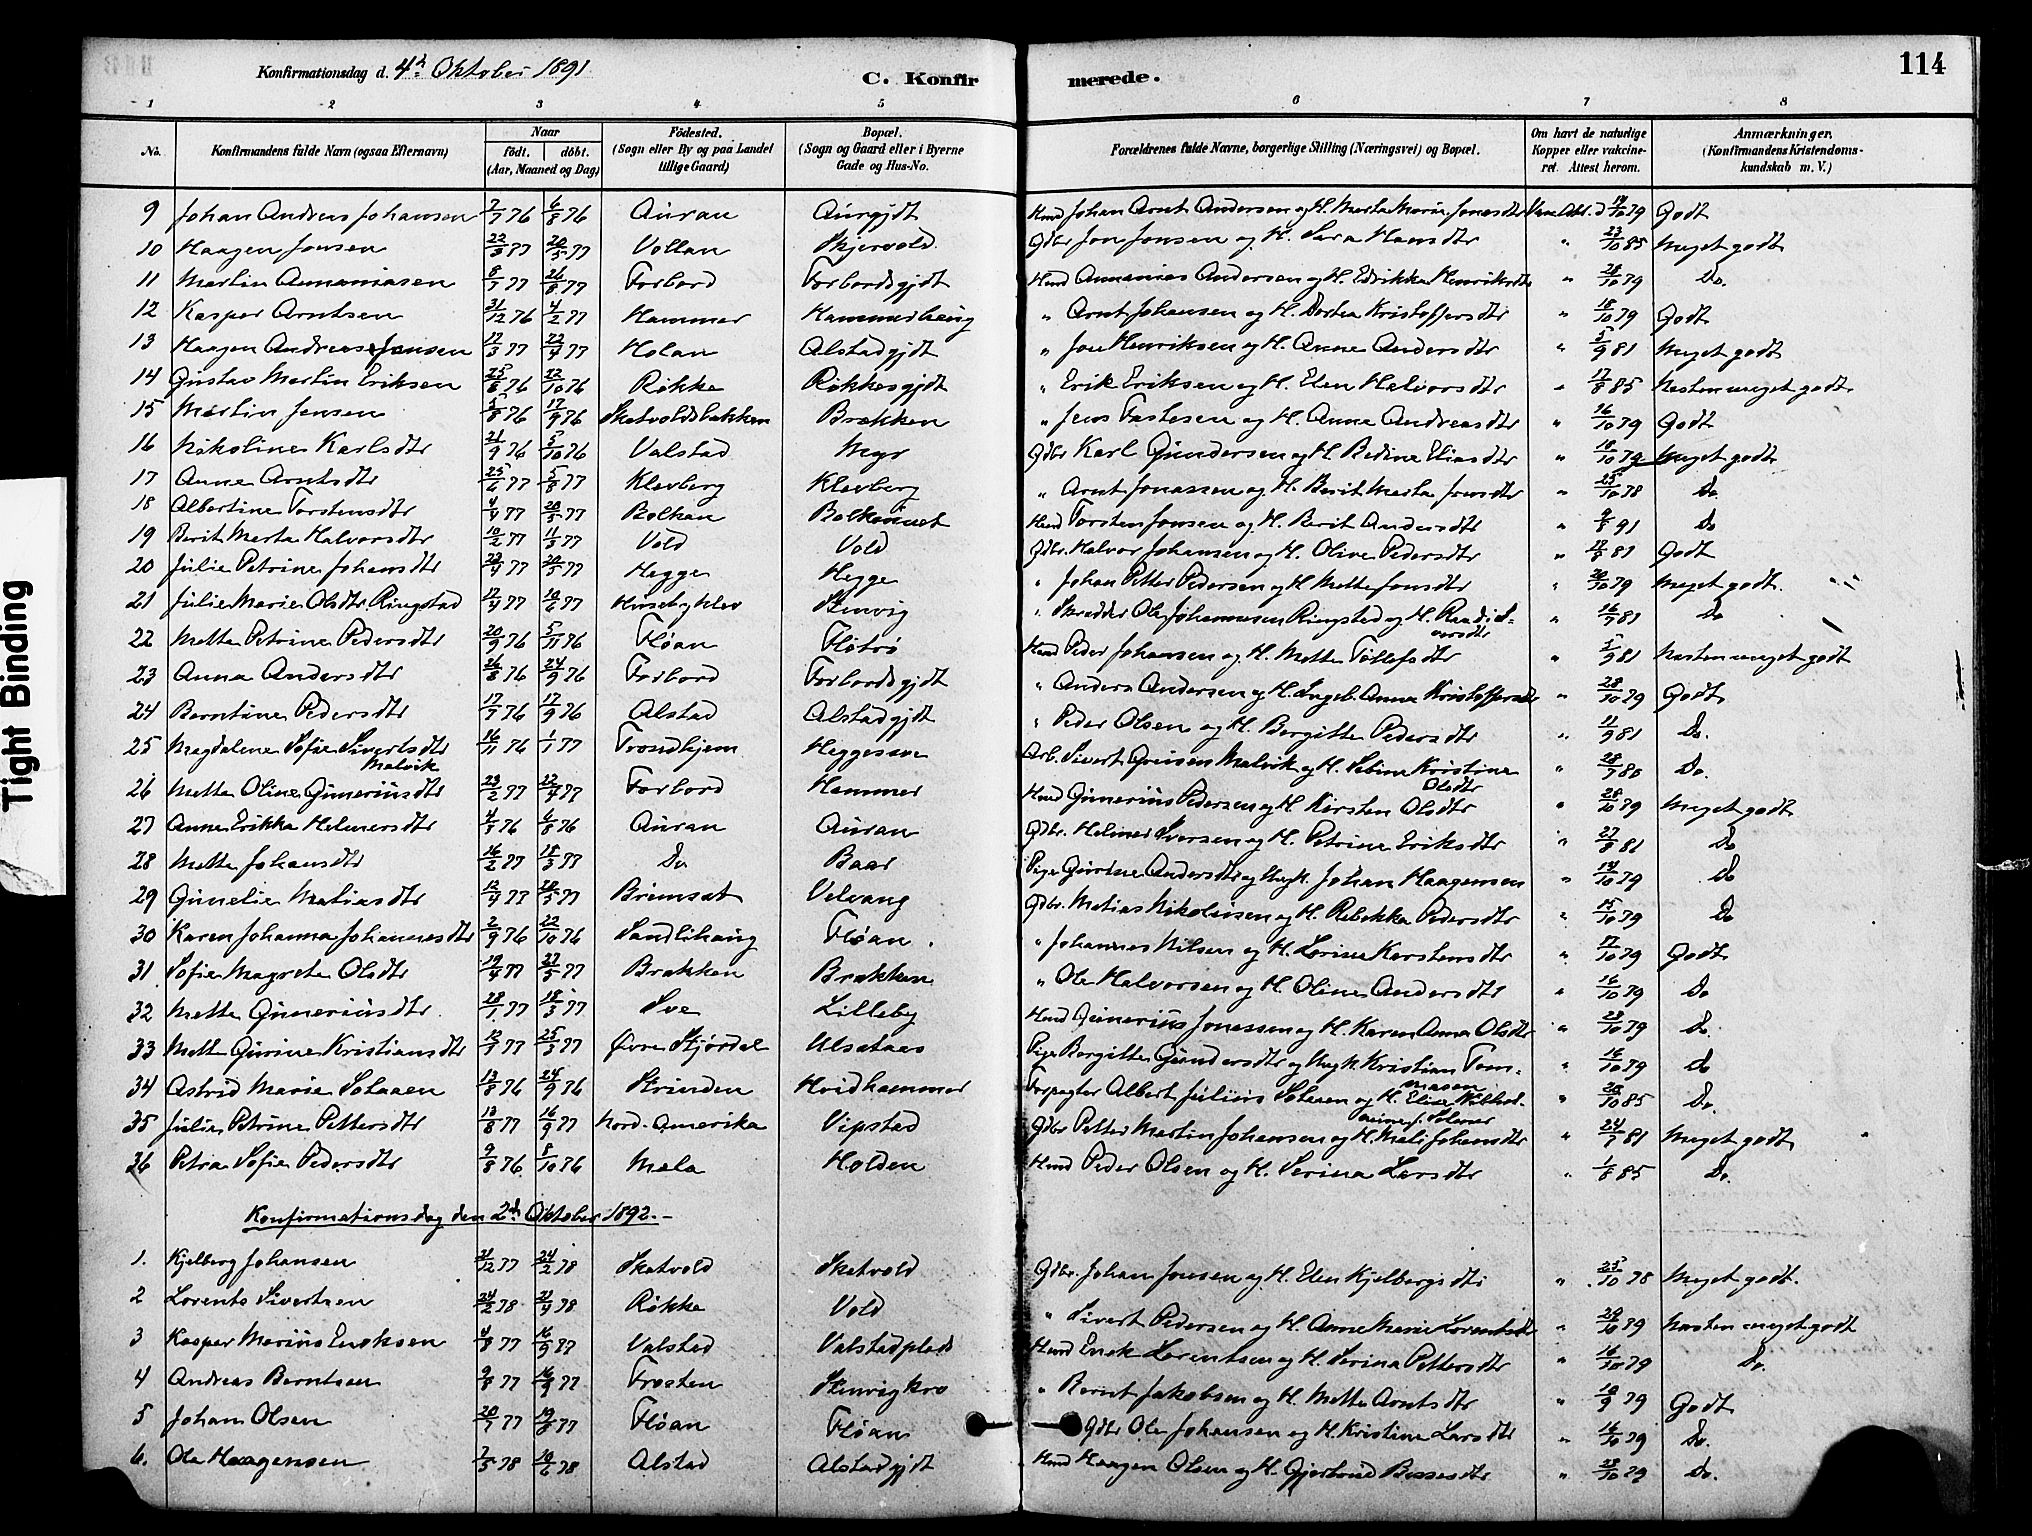 Konfirmationsdag d. 4de Oktober 1891
C. Konfirmerede.
114
1 2 3 4 5 6 7 8
No. Konfirmandens fulde Navn (ogsaa Efternavn) Naar født. døbt. (Aar, Maaned og Dag) Fødested. (Sogn eller By og paa Landet tillige Gaard) Bopæl. (Sogn og Gaard eller i Byerne Gade og Hus-No. Forældrenes fulde Navne, borgerlige Stilling (Næringsvei) og Bopæl. Om havt de naturlige Kopper eller vakcineret. Attest herom. Anmærkninger, (Konfirmandens Kristendomskundskab m. V.)
9 Johan Andreas Johansen 7/7 76 6/8 76 Auran Aurgjdt Hmd Johan Arnt Andersen og H. Marta Maria Jonasdtr 18/10 79 Godt
10 Haagen Jonsen 22/3 77 20/5 77 Vollan Skjervold Gdbr Jon Jonsen og H. Sara Hansdtr " 23/10 85 Meget godt
11 Martin Annaniasen 8/7 77 26/8 77 Forbord Forbordsgjdt Hmd Annanias Andersen og H. Edrikka Henriksdtr " 28/10 79 Do.
12 Kasper Arntsen 31/12 76 4/2 77 Hammer Hammerhaug " Arnt Johansen og H. Dortea Kristoffersdtr " 18/10 79 Godt
13 Haagen Andreas Jonsen 12/3 77 22/4 77 Holan Alstadgjdt " Jon Henriksen og H. Anne Andersdtr " 5/9 81 Meget godt
14 Gustav Martin Eriksen 25/8 76 22/10 76 Røkke Røkkesgjdt " Erik Eriksen og H. Elen Halvorsdtr " 17/8 85 Næsten meget godt
15 Martin Jensen 5/8 76 17/9 76 Skatvoldsbakken Brækken " Jens Tostesen og H. Anne Andreasdtr " 16/10 79 Godt
16 Nikoline Karlsdtr 21/9 76 5/10 76 Valstad Myr Gdbr Karl Gundersen og H. Bedine Eliasdtr " 18/10 79 Meget godt
17 Anne Arntsdtr 25/6 77 5/8 77 Klevberg Klevberg " Arnt Jonassen og H. Berit Marta Jonsdtr " 25/10 78 Do
18 Albertine Torstensdtr 4/4 77 20/5 77 Bolkan Hmd Torsten Jonsen og H. Berit Andersdtr " 9/8 91 Do
19 Berit Marta Halvorsdtr 10/2 77 11/3 77 Vold Vold Gdbr. Halvor Johansen og H. Olive Pedersdtr " 12/9 81 Godt
20 Julie Petrine Johansdtr 22/4 77 20/5 77 Hegge Hegge " Johan Petter Pedersen og H. Mette Jonsdtr " 20/10 79 Meget godt.
21 Julie Marie Olsdtr Ringstad 17/4 77 10/6 77 Stenvig " Skrædder Ole Johannesen Ringstad og H. Ran di Iversdtr " 16/9 81 Do
22 Mette Petrine Pedersdtr 20/9 76 5/11 76 Fløan Fløtrø Hmd Peder Johansen og H. Mette Tollefsdtr " 5/9 81 Næsten meget godt
23 Anna Andersdtr 26/8 76 24/9 76 Forbord Forbordsgjdt " Anders Andersen og H. Ingeb. Anna Kristoffersdtr " 28/10 79 Godt
24 Berntine Pedersdtr 17/7 76 17/9 76 Alstad Alstadgjdt " Peder Olsen og H. Bergitte Pedersdtr " 11/9 81 Do.
25 Magdalena Sofie Sivertsdtr Malvik 16/11 76 1/1 77 Trondhjem Heggesøen Arb. Sivert Malvik og H. Sabine Kristine Olsdtr " 28/7 80 Do.
26 Mette Oline Gunneriusdtr 23/2 77 22/4 77 Forbord Hammer Hmd Gunerius Pedersen og H. Kirsten Olsdtr " 28/10 79 Meget godt
27 Anne Erikka Helmersdtr 4/7 76 6/8 76 Auran Auran Gdbr. Helmer Iversen og H. Petrine Eriksdtr " 27/8 81 Do
28 Mette Johansdtr 16/2 77 18/3 77 Do Baar Pige Gurine Andersdtr og Ungk. Johan Haagensen " 14/10 79 Do
29 Gunelie Matiasdtr 12/4 77 20/5 77 Brimset Velvang Gdbr. Matias Nikolaisen og H. Rebekka Pedersdtr " 15/10 79 Do
30 Karen Johanna Johannesdtr 2/9 76 22/10 76 Sandlihaug Fløan. " Johannes Nilsen og H. Lorine Karstensdtr " 17/10 79 Godt
31 Sofie Magrete Olsdtr 19/4 77 27/5 77 Brækken Brækken " Ole Halvorsen og H. Oline Andersdtr " 16/10 79 Do
32 Mette Guneriusdtr. 28/1 77 18/3 77 Sve Lilleby Hmd Gunerius Jonassen og H. Karen Anna Olsdtr " 28/10 79 Do.
33 Mette Gurine Kristiansdtr 12/1 77 25/3 77 Øvre Stjørdal Ulstaas Pige Bergitte Gundersdtr og Ungk Kristian Tommasen " 16/10 79 Do
34 Astrid Marie Solaaen 13/8 76 24/9 76 Strinden Hvidhammer Forpagter Albert Julius og H. Elise " 20/10 85 Do.
35 Julie Petrine Pettersdtr 13/8 77 16/9 77 Nord-Amerika Vipstad Gdbr Petter Martin Johansen og H. Mali Johansdtr " 24/7 81 Meget godt
36 Petra Sofie Pedersdtr 9/8 76 8/10 76 Mæla Holden Hmd Peder Olsen og H. Serina Larsdtr " 1/8 85 Do.
Konfirmationsdag den 2den Oktober 1892.-
1. Kjelberg Johansen 21/12 77 24/2 78 Skatvold Skatvold Gdbr. Johan Jonsen og H. Elen Kjelbergsdtr " 25/10 78 Meget godt.
2 Lorents Sivertsen 24/2 78 21/4 78 Røkke Vold " Sivert Pedersen og H. Anne Marie Lorentsdtr " 29/10 79 Næsten meget godt
3 Kasper Marius Enoksen 4/8 77 16/9 77 Valstad Valstadplads Hmd Enok Lorentsen og H. Serina Pettersdtr " 16/10 79 Do.
4 Andreas Berntsen 9/8 77 16/9 77 Frosten Stenvigkro " Bernt Jakobsen og H. Mette Arntsdtr " 18/9 79 Godt
5 Johan Olsen 20/7 77 19/8 77 Fløan Fløan Gdbr Ole Johansen og H. Kristine Larsdtr " 16/10 79 Do.
6. Ole Haagensen 7/5 78 10/6 78 Alstad Alstadgjdt Hmd Haagen Olsen og H. Gjertrud Bessesdtr " 28/10 79 Do.
Tight Binding